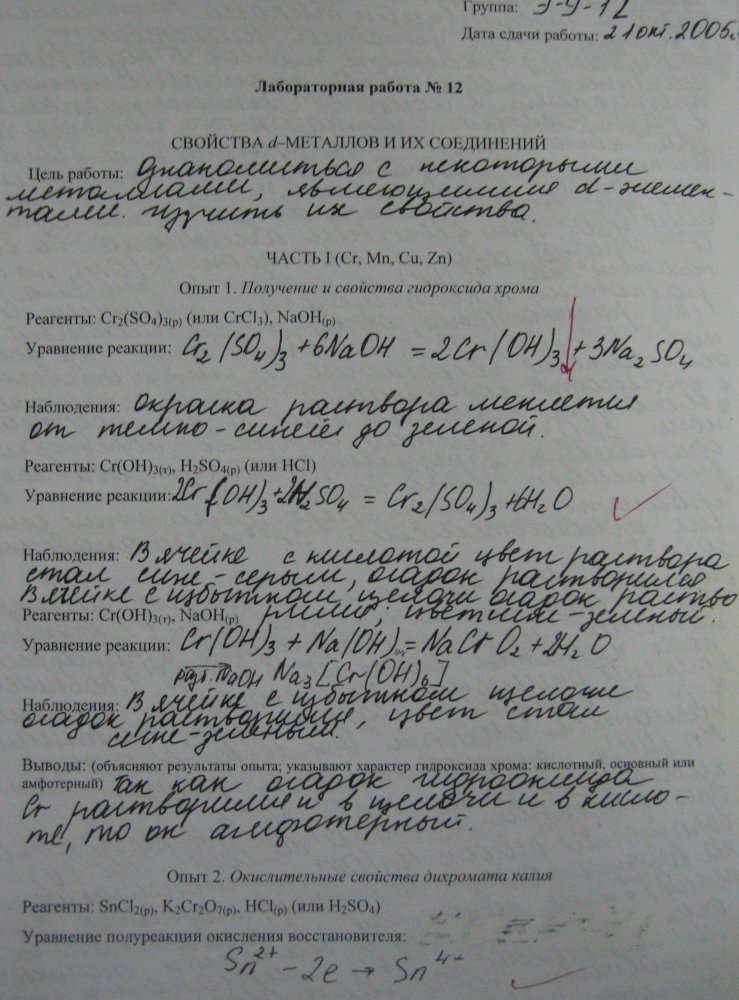 Группа: Э-9-12
Дата сдачи работы: 21 окт. 2005г.
Лабораторная работа № 12
СВОЙСТВА d–МЕТАЛЛОВ И ИХ СОЕДИНЕНИЙ
Цель работы: Ознакомиться с некоторыми
металлами, являющимися d-элемен-
тами. изучить их свойства.
ЧАСТЬ I (Cr, Mn, Cu, Zn)
Опыт 1. Получение и свойства гидроксида хрома
Реагенты: Cr₂(SO₄)₃(р) (или CrCl₃), NaOH(р)
Уравнение реакции: Cr₂(SO₄)₃ + 6NaOH = 2Cr(OH)₃↓ + 3Na₂SO₄
Наблюдения: окраска раствора меняется
от темно-синей до зеленой.
Реагенты: Cr(OH)₃(т), H₂SO₄(р) (или HCl)
Уравнение реакции: 2Cr(OH)₃ + 3H₂SO₄ = Cr₂(SO₄)₃ + 6H₂O
Наблюдения: В ячейке с кислотой цвет раствора
стал сине-серым, осадок растворился
В ячейке с избытком щелочи осадок раство
Реагенты: Cr(OH)₃(т), NaOH(р) рился, цвет сине-зеленый.
Уравнение реакции: Cr(OH)₃ + Na(OH) = NaCrO₂ + 2H₂O
NaOH Na₃[Cr(OH)₆]
Наблюдения: В ячейке с избытком щелочи
осадок растворился, цвет стал
сине-зеленым.
Выводы: (объясняют результаты опыта; указывают характер гидроксида хрома: кислотный, основный или
амфотерный) Так как осадок гидрооксида
Cr растворился и в щелочи и в кисло-
те, то он амфотерный.
Опыт 2. Окислительные свойства дихромата калия
Реагенты: SnCl₂(р), K₂Cr₂O₇(р), HCl(р) (или H₂SO₄)
Уравнение полуреакции окисления восстановителя:
Sn²⁺ – 2e → Sn⁴⁺